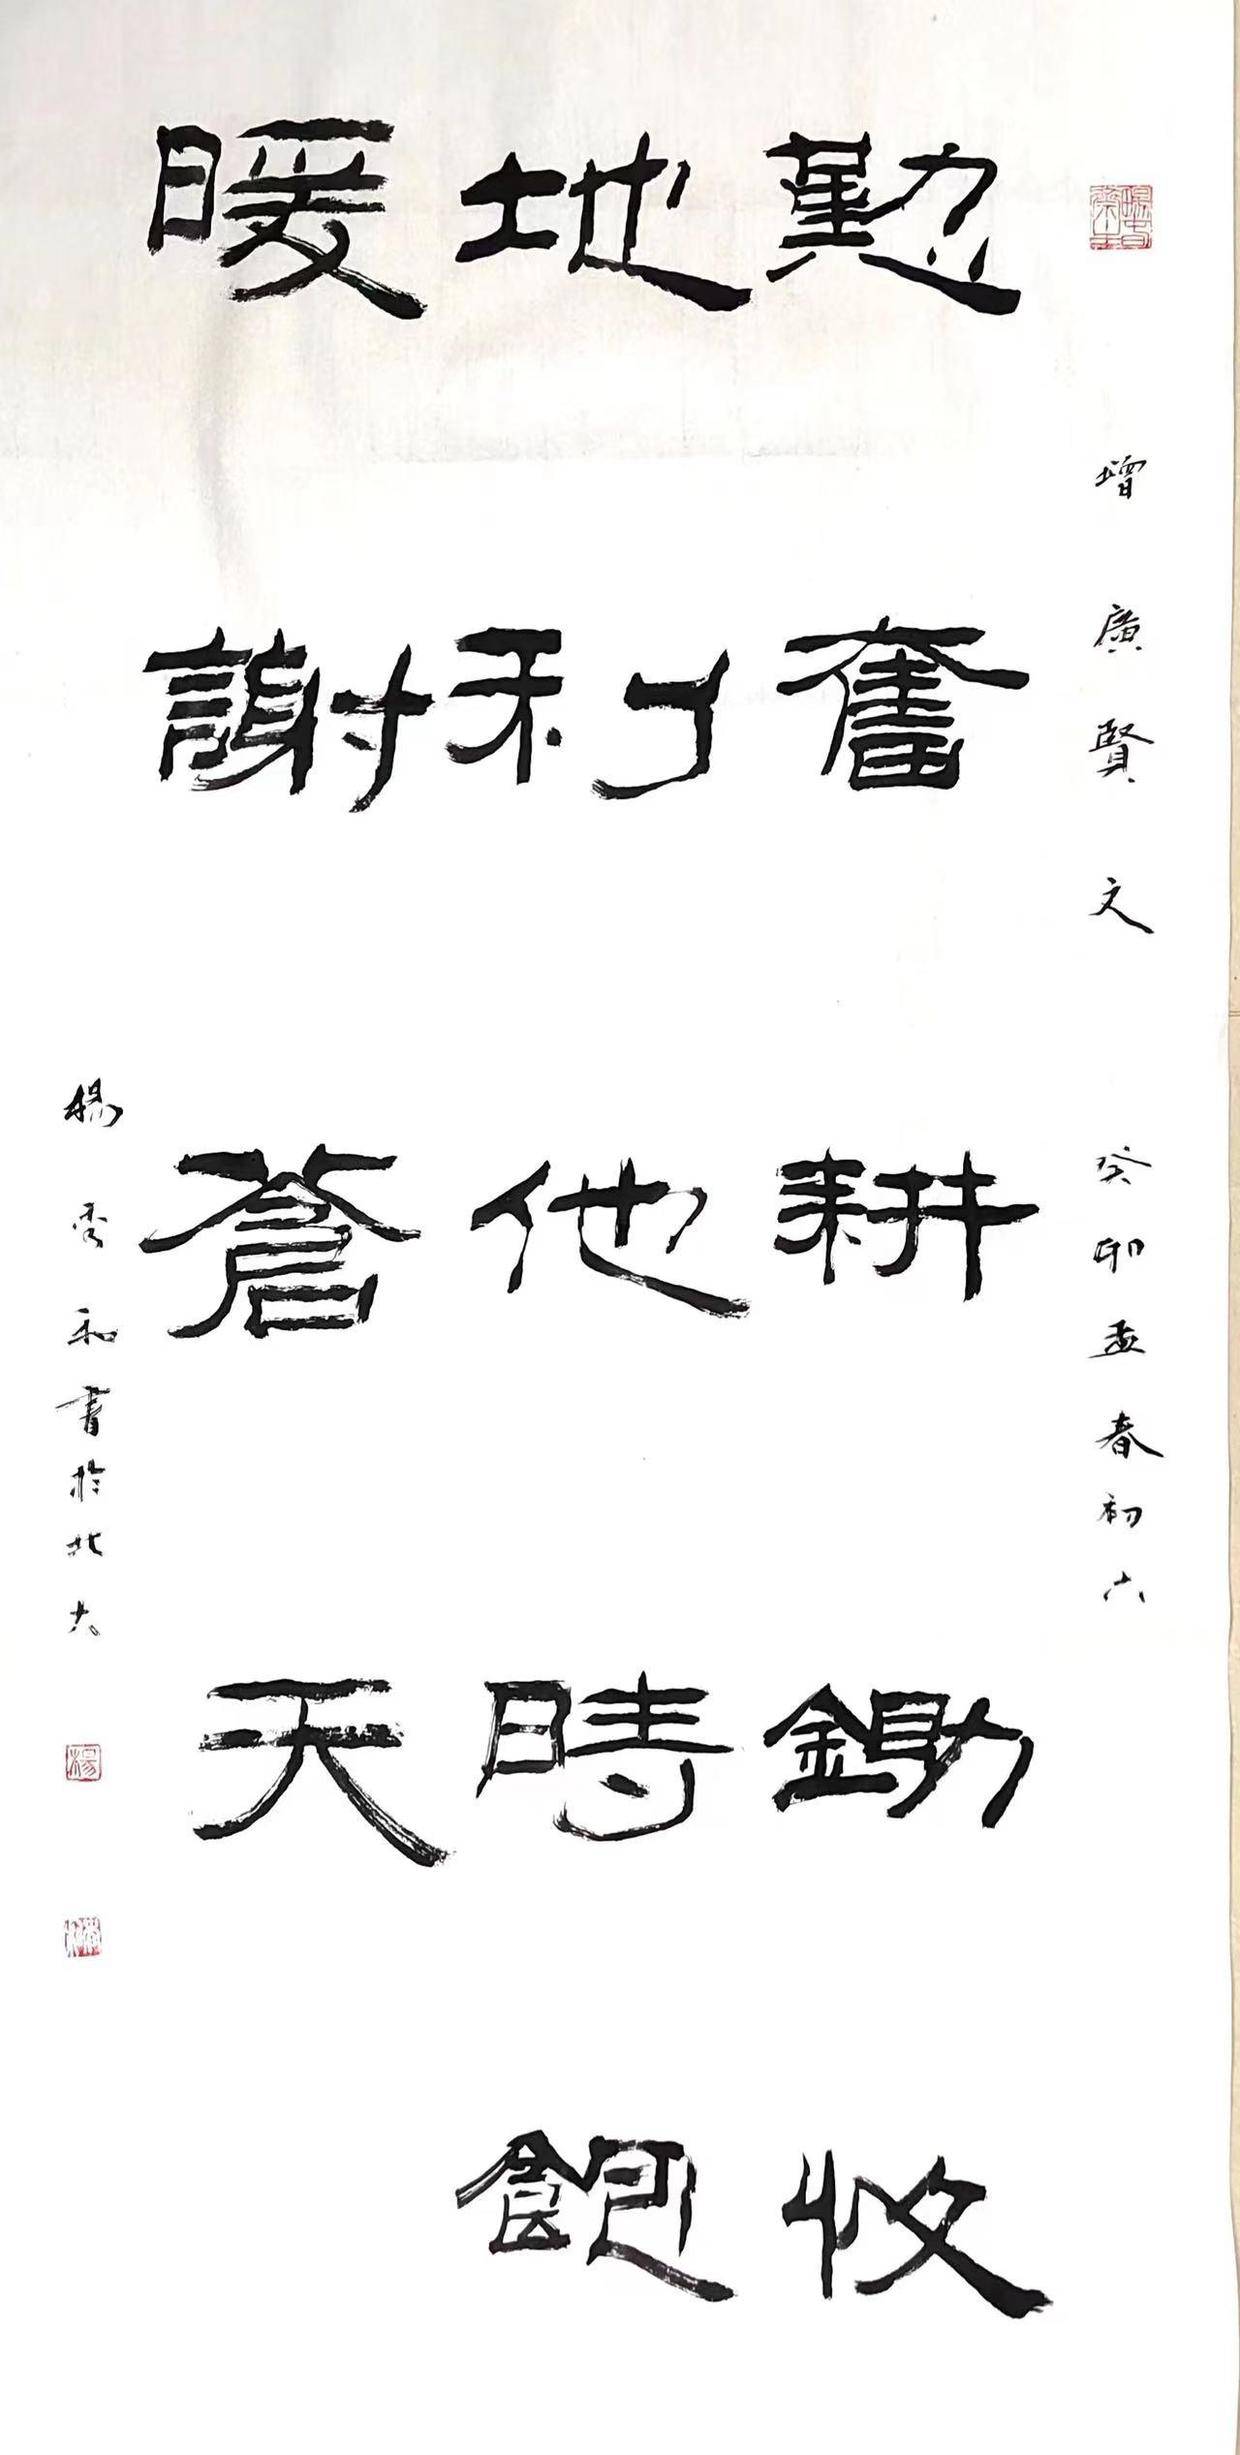 增廣賢文 癸卯孟春初六
懃奮耕鋤收
地利他時飽
暖謝蒼天
楊秀和書於北大
楊